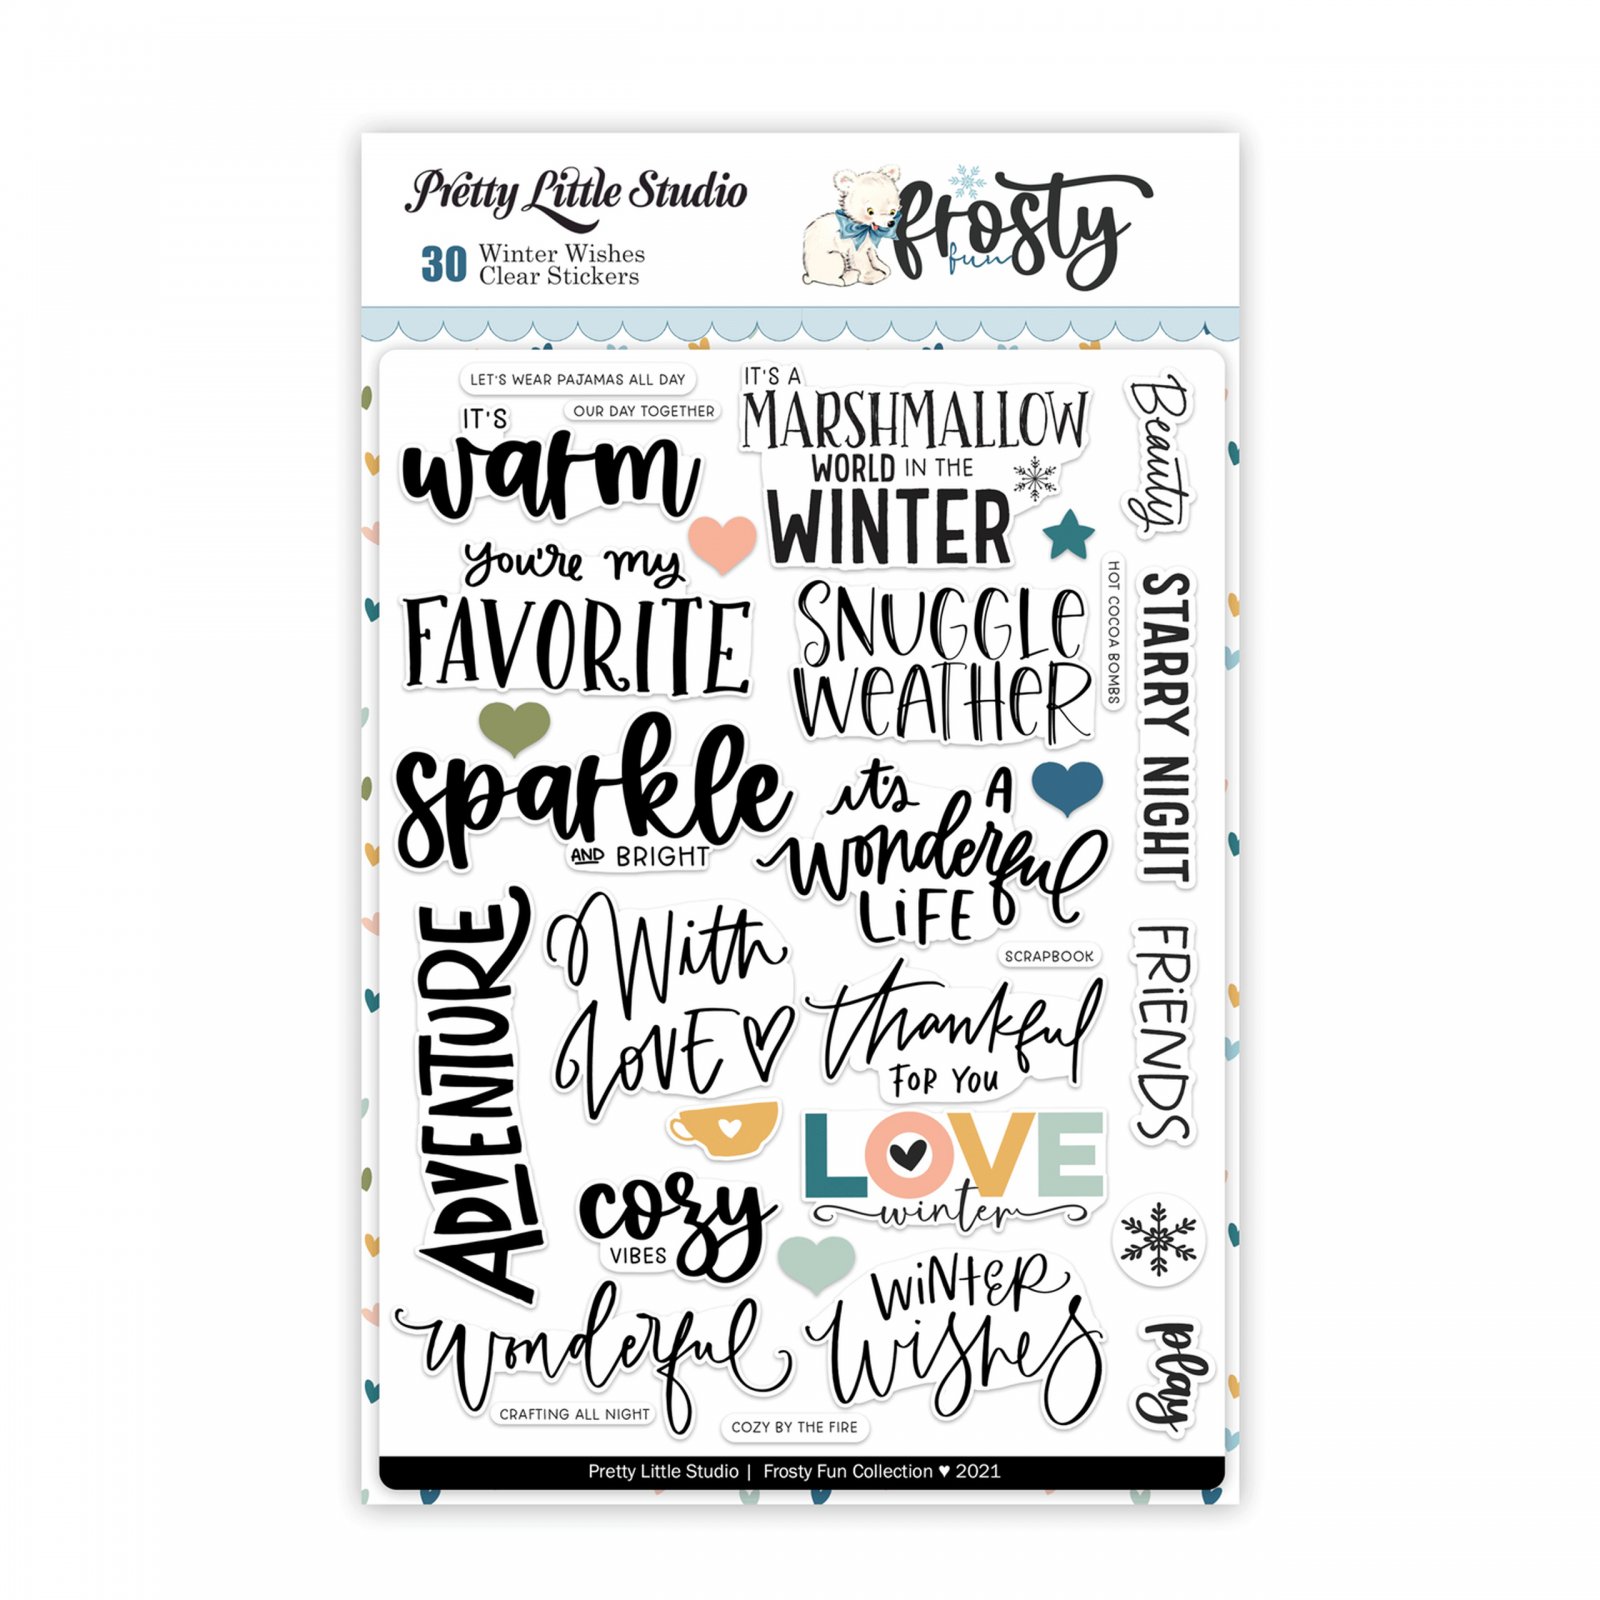 Pretty Little Studio
30 Winter Wishes
Clear Stickers
frosty
fun
LET'S WEAR PAJAMAS ALL DAY
OUR DAY TOGETHER
IT'S
warm
IT'S A
MARSHMALLOW
WORLD IN THE
WINTER
Beauty
you're my
FAVORITE
SNUGGLE
WEATHER
HOT COCOA BOMBS
STARRY NIGHT
sparkle
AND BRIGHT
it's A
wonderful
LiFE
ADVENTURE
With
LOVE
SCRAPBOOK
thankful
FOR YOU
FRiENDS
LOVE
winter
cozy
VIBES
WiNtER
Wishes
wonderful
play
CRAFTING ALL NIGHT
COZY BY THE FIRE
Pretty Little Studio | Frosty Fun Collection ♥ 2021